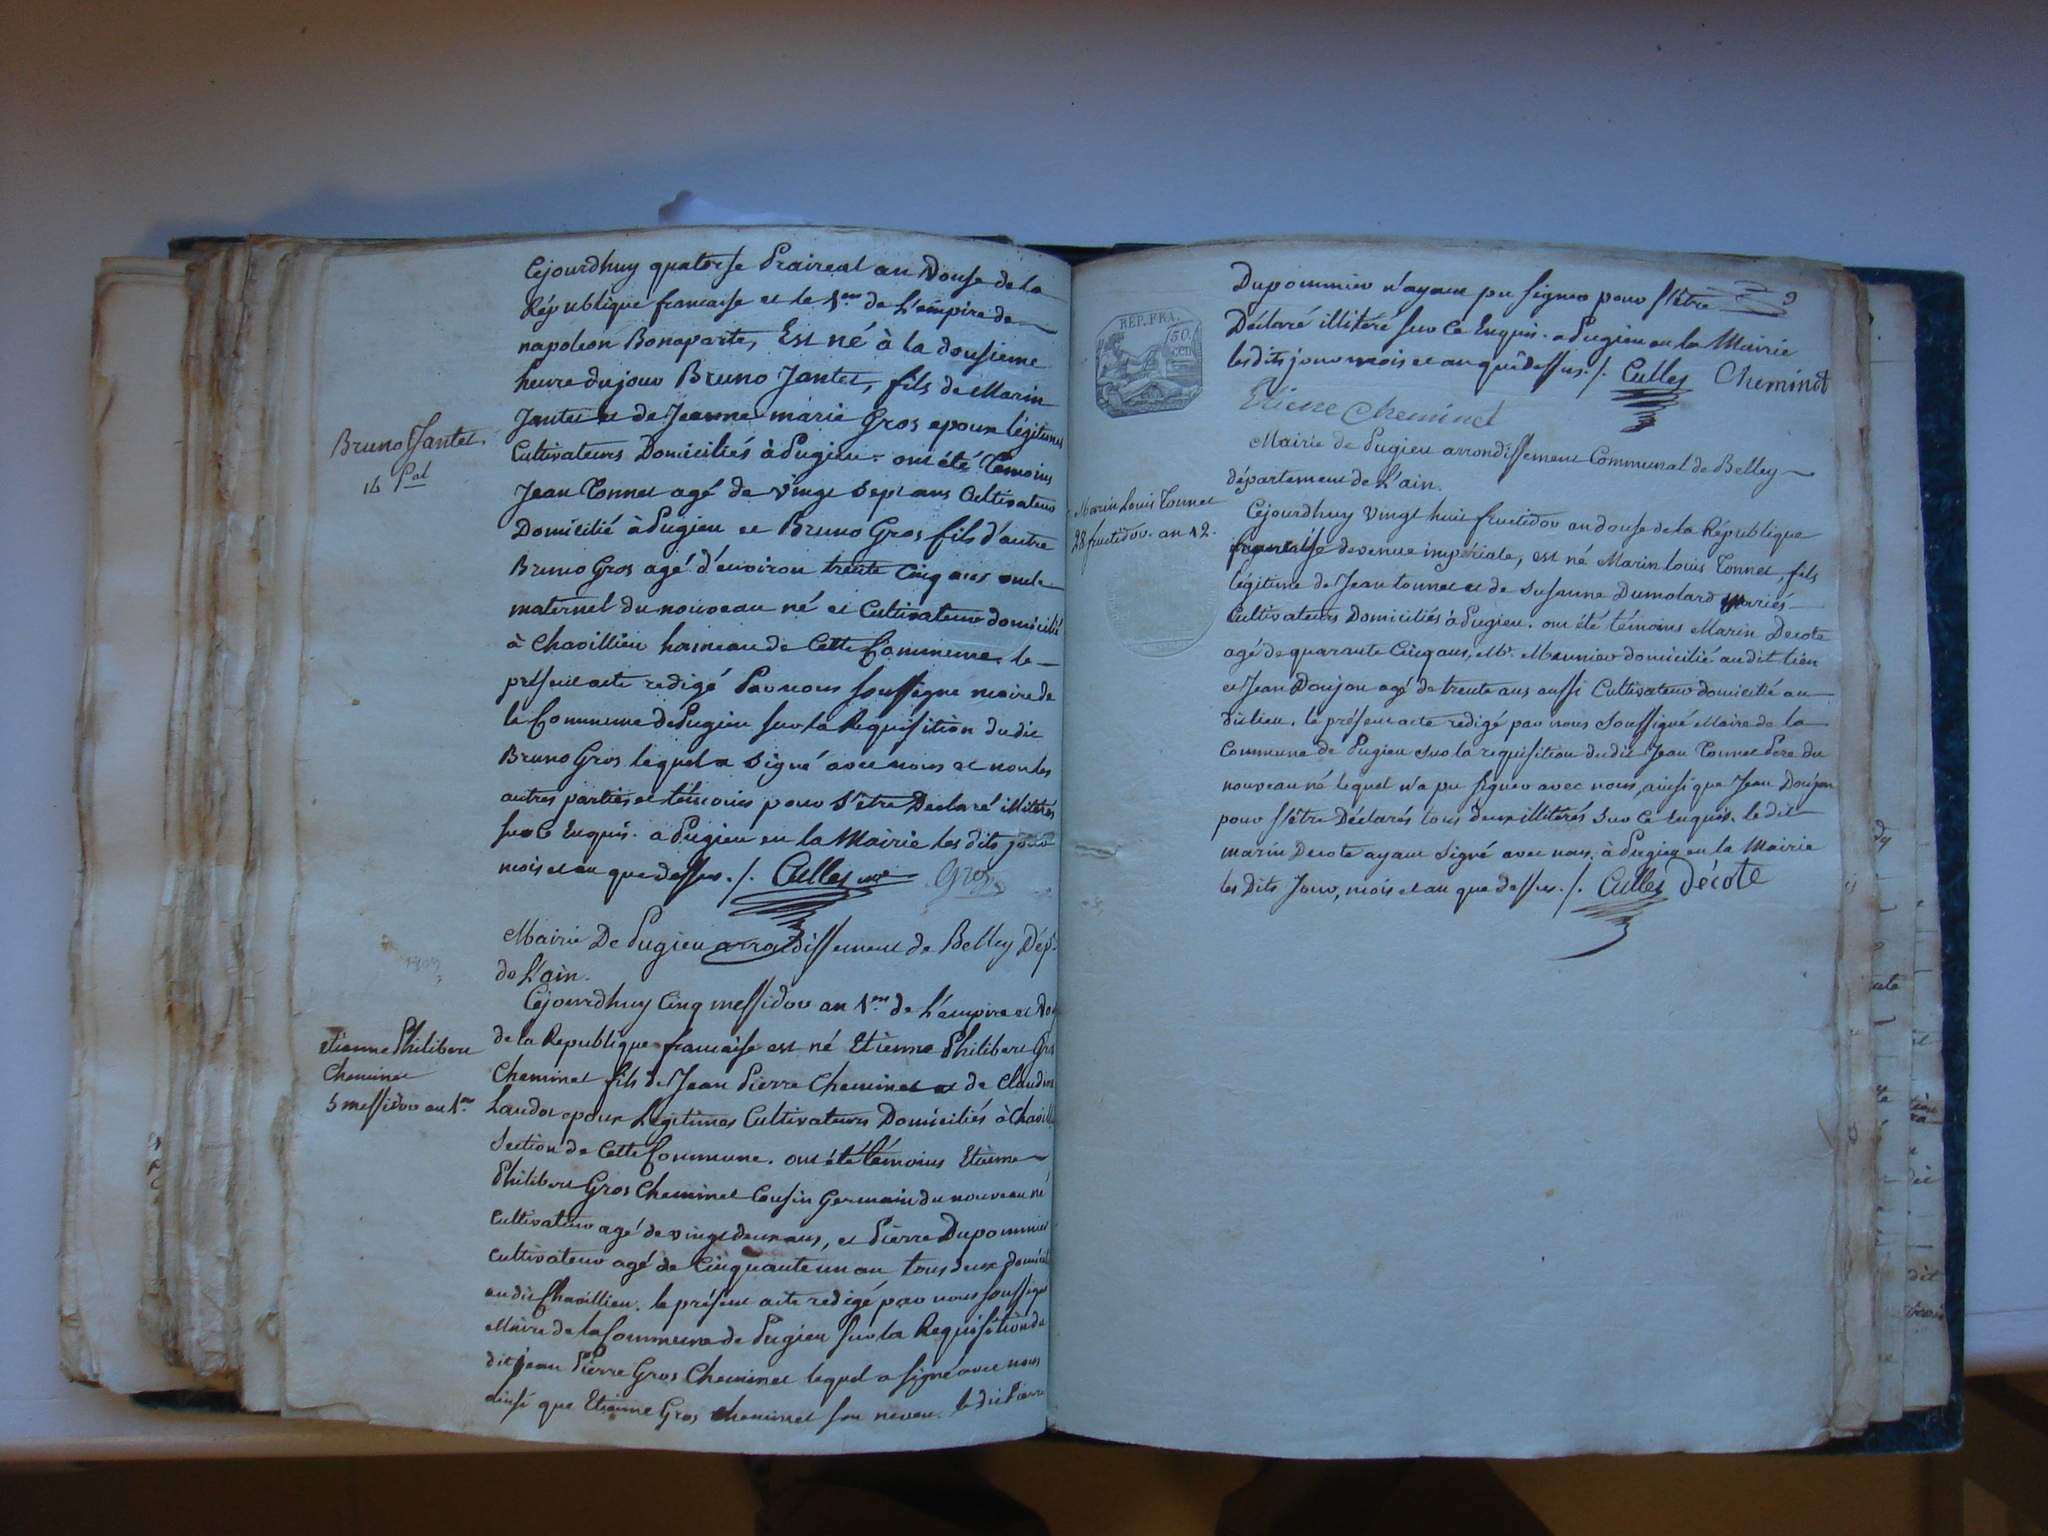 Cejourdhuy quatorse Praireal an Douse de la
République francaise et le 1.er de L'empire de
napoleon Bonaparte, Est né à la dousieme
heure du jour Bruno Jantet, fils de Marin
Jantet et de Jeanne marie Gros epoux légitimes
Cultivateurs Domiciliés à Pugieu. ont été Temoins
Jean Tonnet agé de vingt sept ans Cultivateur
Domicilié à Pugieu et Bruno Gros fils d'autre
Bruno Gros agé d'environ trente Cinq ans oncle
maternel du nouveau né et Cultivateur domicilié
à Chavillieu hameau de Cette Commune. le
présent acte redigé Par nous soussigné maire de
la Commune de Pugieu sur la Requisition du dit
Bruno Gros lequel a Signé avec nous et non les
autres parties et témoins pour S'être Déclaré illiterés
sur Ce Enquis. a Pugieu en la Mairie les dits jour
mois et an que dessus. /. Culles Gros
Bruno Jantet.
14 P.al
Mairie De Pugieu arrondissement de Belley Dép.t
de L'ain.
Cejourdhuy Cinq messidor an 1.er de L'empire et
de la Republique francaise est né Etienne Philibert Gros
Cheminet fils de Jean Pierre Cheminet et de Claudine
Landos epoux Légitimes Cultivateurs Domiciliés à
Section de Cette Commune. ont été témoins Etienne
Philibert Gros Cheminet Cousin Germain du nouveau né
Cultivateur agé de vingt deux ans, et Pierre Dupommier
Cultivateur agé de Cinquante un an tous deux
au dit Chavillieu. le présent acte redigé par nous soussigné
Maire de la Commune de Pugieu sur la Requisition du
dit Jean Pierre Gros Cheminet lequel a signé avec nous
ainsi que Etienne Gros cheminet son neveu. le dit Pierre
etienne Philibert
Cheminet
5 messidor an 1.er
Dupommier n'ayant pu signer pour s'être
9
Déclaré illitéré sur Ce Enquis. a Pugieu en la Mairie
les dits jour mois et an que dessus. /. Culles Cheminet
Etiene Cheminet
REP. FRA.
50
CEN
Mairie de Pugieu arrondissement Communal de Belley
département de L'ain.
Marin Louis Tonnet
28 fructidor. an 12.
Cejourdhuy Vingt huit fructidor an douse de la République
française devenue impériale, est né Marin louis Tonnet, fils
légitime de Jean tonnet et de Susanne Dumolard mariés
Cultivateurs Domiciliés à Pugieu. ont été témoins Marin Decote
agé de quarante Cinq ans, M.e Meunier domicilié au dit lieu
et Jean Doujon agé de trente ans aussi Cultivateur domicilié au
dit lieu. le présent acte redigé par nous Soussigné Maire de la
Commune de Pugieu sur la requisition du dit Jean Tonnet Pere du
nouveau né lequel n'a pu signer avec nous, ainsi que Jean Doujon
pour s'être Déclarés tous deux illitérés Sur Ce Enquis. le dit
marin Decote ayant Signé avec nous. à Pugieu en la Mairie
les dits Jour, mois et an que dessus. /. Culles Décote